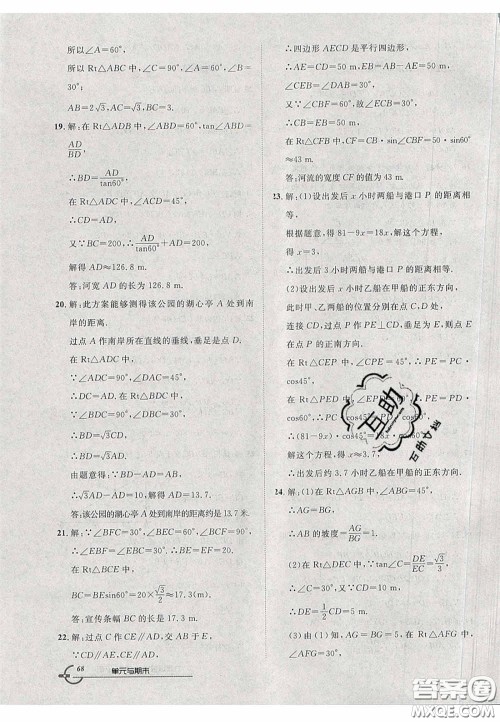 所以∠A=60°,
所以 Rt△ABC 中,∠C=90°,∠B=30°,
AB=2√3,b=√3.
19. 解:在 Rt△ADB 中,∠ABD=60°,tan∠ABD=
AD/BD,
∴BD=AD/tan60°.
在 Rt△ADC 中,∠ACD=45°,
∴CD=AD.
又∵BC=200,∴AD/tan60°+AD=200.
解得 AD≈126.8 m.
答:河宽 AD 的长为 126.8 m.
20. 解:此方案能够测得该公园的湖心亭 A 处到南
岸的距离.
过点 A 作南岸所在直线的垂线,垂足是点 D.
在 Rt△ADC 中,
∵∠ADC=90°,∠ACD=45°,
∴CD=AD.
在 Rt△BAD 中,
∵∠ADB=90°,∠BAD=60°,
∴BD=√3AD.
由题意得:BD−CD=10,
∴√3AD−AD=10,解得:AD≈13.7.
答:该公园的湖心亭 A 处到南岸的距离约是 13.7 米.
21. 解:∵∠BFC=30°,∠BEC=60°,∠BCF=90°,
∴∠EBF=∠EBC=30°.∴BE=EF=20.
在 Rt△BCE 中,
BC=BEsin60°≈20×√3/2≈17.3(m).
答:宣传条幅 BC 的长是 17.3 m.
22. 解:过点 C 作 CE∥AD,交 AB 于点 E.
∵CD∥AE,CE∥AD,
∴四边形 AECD 是平行四边形,
∴AE=CD=50 m,
∠CEB=∠DAB=30°.
又∵∠CBF=60°,
故∠ECB=30°,
∴CB=EB=50 m,
∴在 Rt△CFB 中,CF=CB·sin∠CBF=50·sin
60°≈43 m.
答:河流的宽度 CF 的值为 43 m.
23. 解:(1)设出发后 x 小时两船与港口 P 的距离相
等.
根据题意,得 81−9x=18x.解这个方程,
得 x=3,
∴出发后 3 小时两船与港口 P 的距离相等.
(2)设出发后 x 小时乙船在甲船的正东方向,
此时甲、乙两船的位置分别在点 C,D 处.
连接 CD,过点 P 作 PE⊥CD,垂足为 E.则点 E
在点 P 的正南方向.
在 Rt△CEP 中,∠CPE=45°,∴PE=PC·
cos45°.
在 Rt△PED 中,∠EPD=60°,∴PE=PD·
cos60°.
∴(81−9x)·cos45°=18x·cos60°.
解这个方程,
得 x≈3.7.
∴出发后约 3.7 小时乙船在甲船的正东方向.
24. 解:(1)在 Rt△AGB 中,∠ABG=45°,
∴AG=BG,
∴AB 的坡度=AG/BG=1.
(2)在 Rt△DEC 中,∵tan∠C=DE/EC=√3/3,
∴∠C=30°.
又∵CD=1 m,
∴DE=1/2CD=0.5 m.
(3)由(1)知,∠ABG=45°,∠C=30°.
在 Rt△AFG 中,
68 单元与期末
互助
答案圈
MXQE.COM